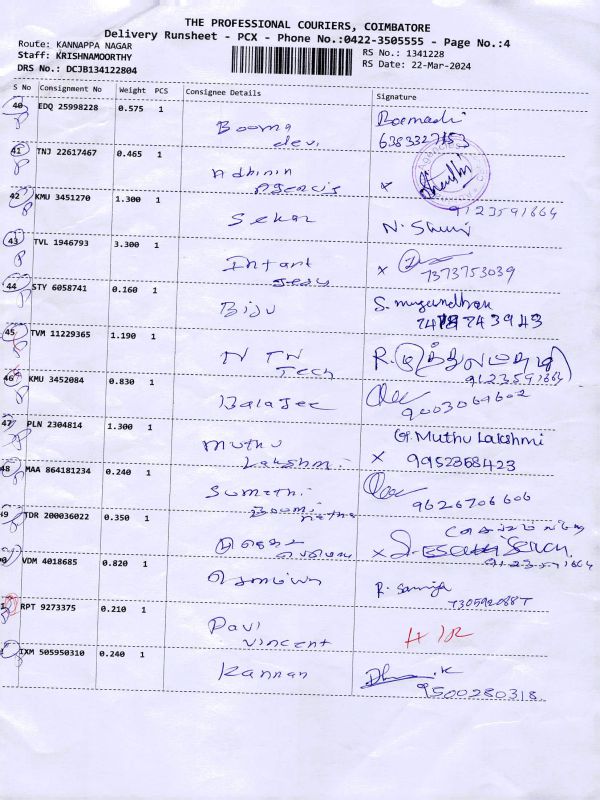 THE PROFESSIONAL COURIERS, COIMBATORE
Delivery Runsheet - PCX - Phone No.:0422-3505555 - Page No.:4
Route: KANNAPPA NAGAR
RS No.: 1341228
Staff: KRISHNAMOORTHY
RS Date: 22-Mar-2024
DRS No.: DCJB134122804
S No Consignment No Weight PCS Consignee Details Signature
40 EDQ 25998228 0.575 1
Booma
devi
6383327153
41 TNJ 22617467 0.465 1
Agencis
x
42 KMU 3451270 1.300 1
9123591664
Sekar
N.
43 TVL 1946793 3.300 1
Infant
Jesu
x
7373753039
44 STY 6058741 0.160 1
Biju
S.
743943
45 TVM 11229365 1.190 1
N TN
Tech
R.
9123591664
46 KMU 3452084 0.830 1
Balajee
9003064602
47 PLN 2304814 1.300 1
muthu
Lakshmi
G. Muthu Lakshmi
x 9952368423
48 MAA 864181234 0.240 1
Sumathi
Boominathan
9626706606
49 TDR 200036022 0.350 1
x
9123591664
VDM 4018685 0.820 1
R.
7305920887
RPT 9273375 0.210 1
Pavi
vincent
IXM 505950310 0.240 1
Kannan
9500280318